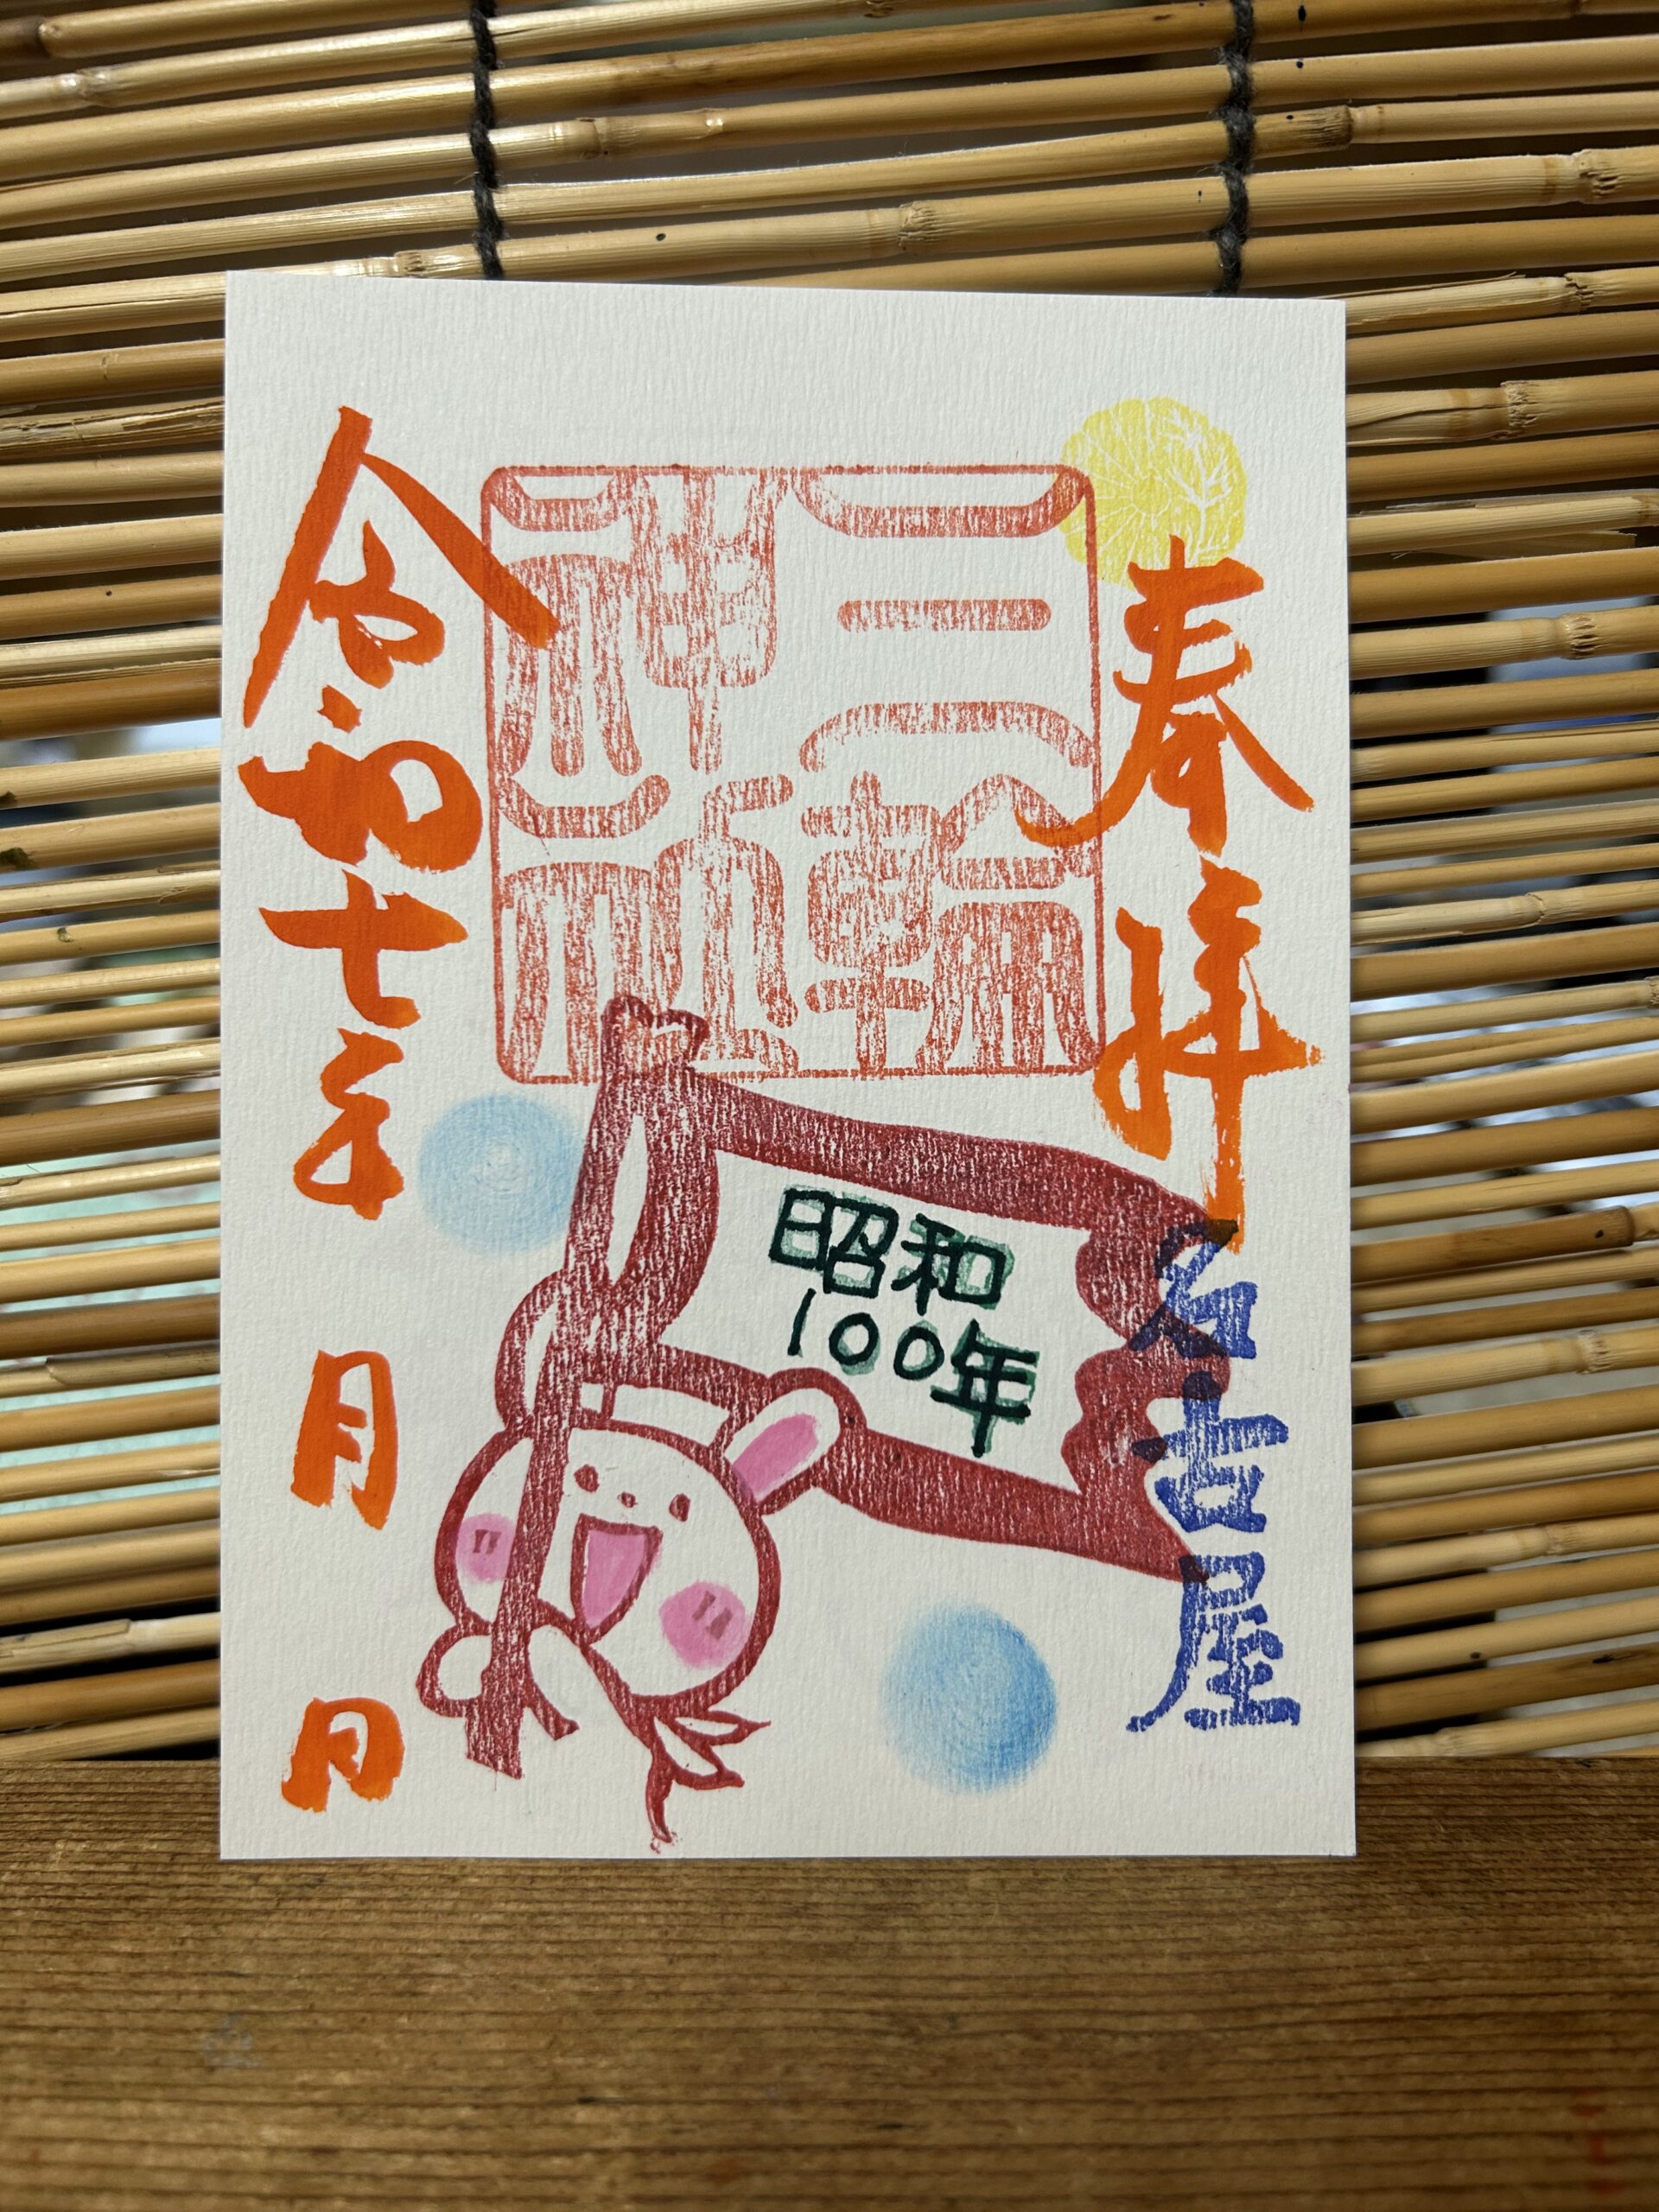 奉拝
名古屋
三輪
神社
昭和
100年
令和七年 月 日